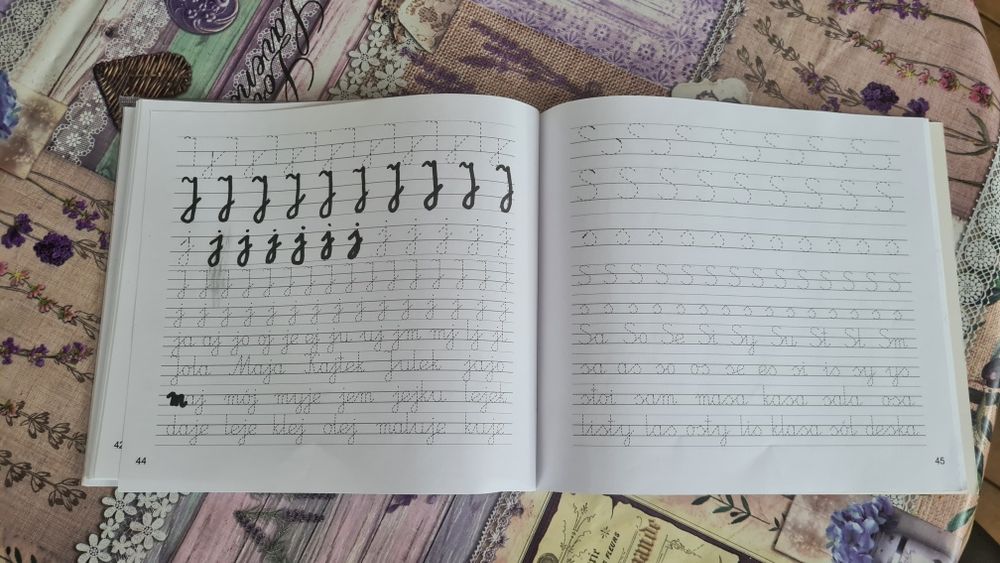 J J J J J J J J
J J J J J J J J J J
j j j j j j j j j j j j
j j j j j j j j j j j j j
j j j j j j j j j j j j j
ja aj jo oj je ej ju uj jm mj lj jl
Jola Maja Kajtek Julek jajo
maj mój myje jem jejku lejek
daje leje klej olej maluje kuje
44
S S S S S S S S S
S S S S S S S S S
s s s s s s s s s s
S S S S S S S S S S S S S
s s s s s s s s s s s s s
Sa So Se Si Sy Su St Sl Sm
sa as so os se es si is sy ys
stoi sam masa kasa sala osa
listy las osty lis klasa sól deska
45
42